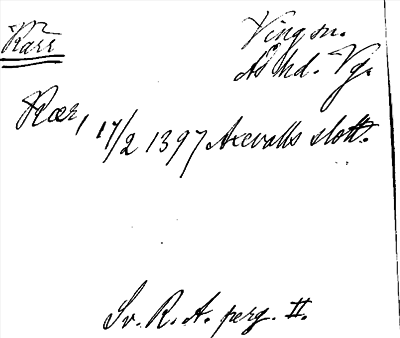 Karr
Vings sn.
Ås hd. Vg.
Kær, 17/2 1397 Axevalls slott.
Sv. R. A. perg. II.